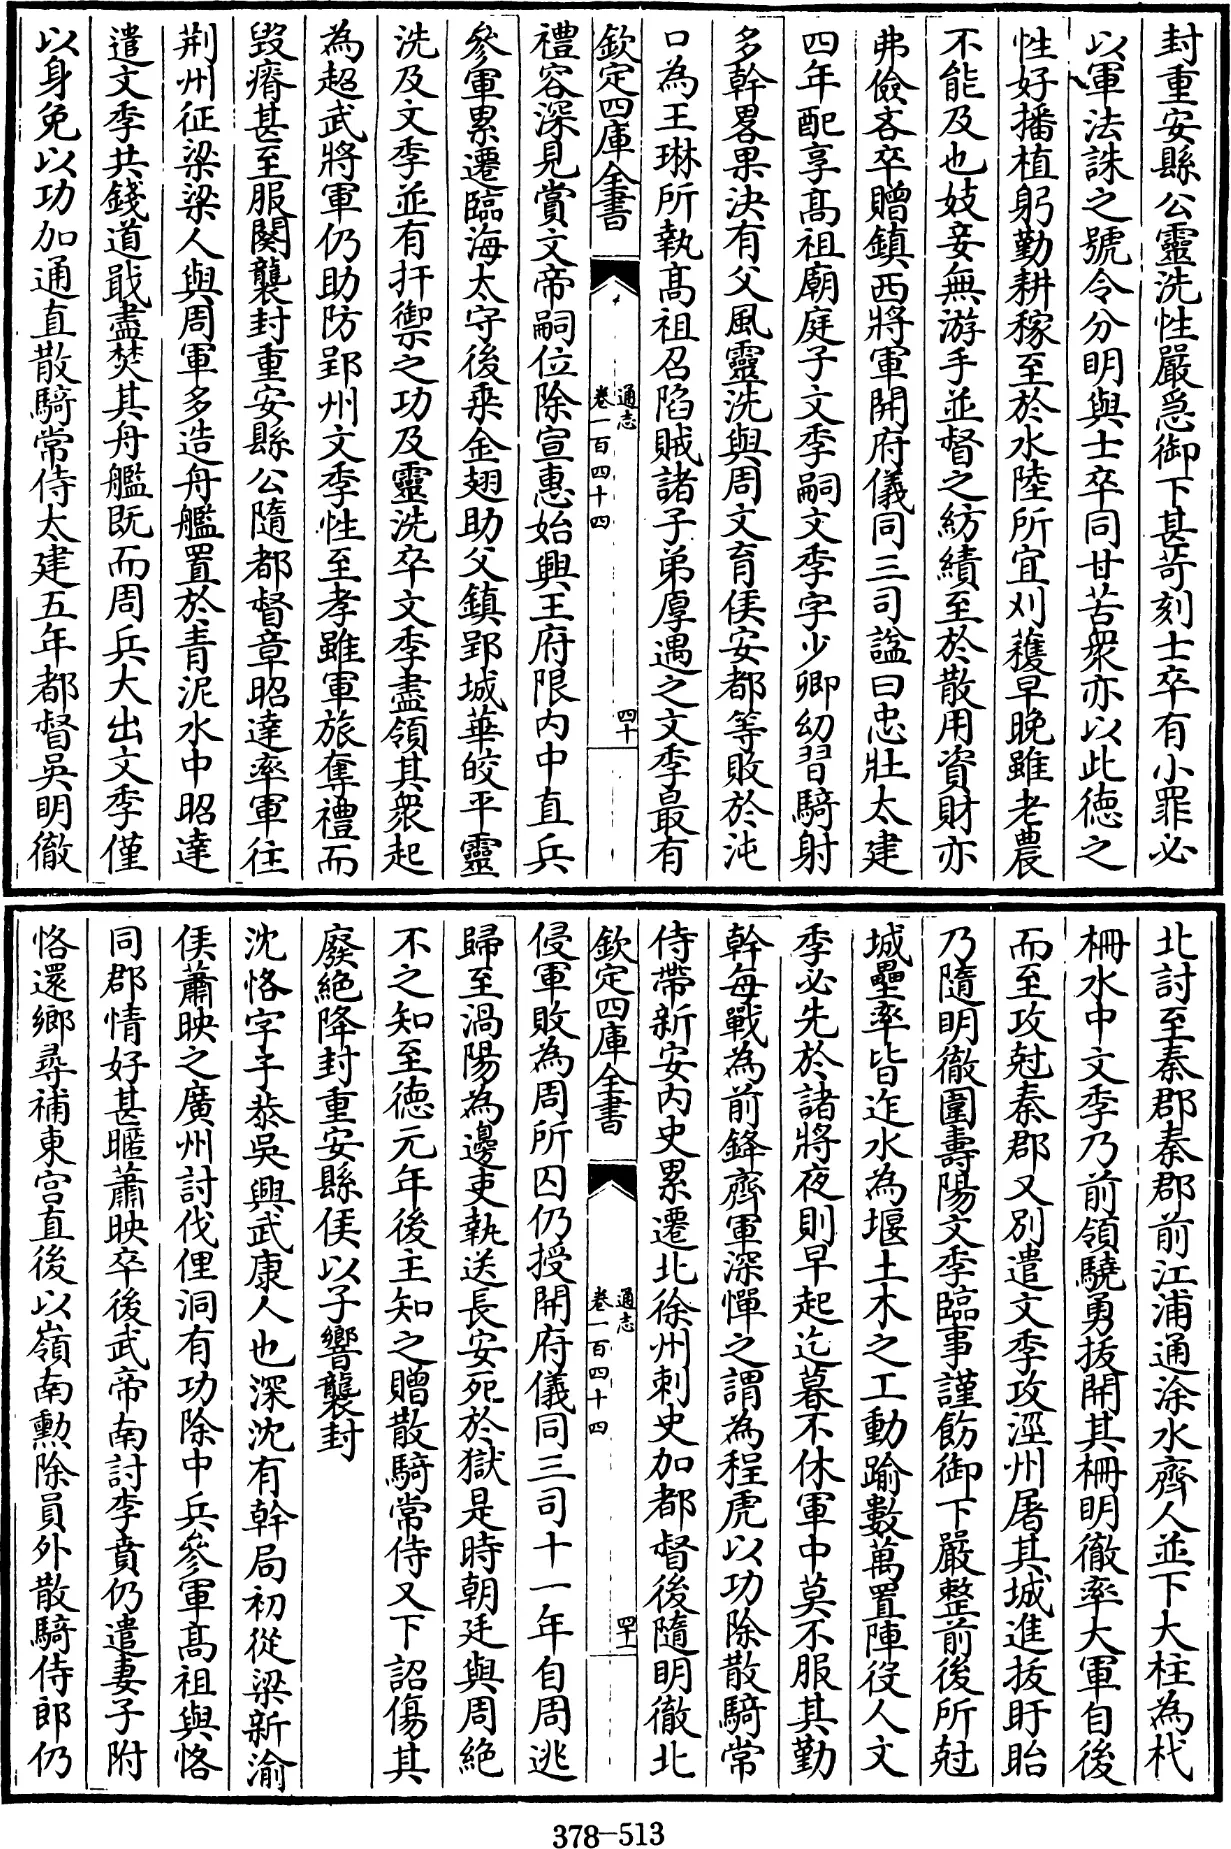 封重安縣公靈洗性嚴急御下甚苛刻士卒有小罪必
以軍法誅之號令分明與士卒同甘苦衆亦以此徳之
性好播植躬勤耕稼至於水陸所宜刈穫早晚雖老農
不能及也妓妾無游手並督之紡績至於散用資財亦
弗儉吝卒贈鎮西將軍開府儀同三司諡曰忠壯太建
四年配享高祖廟庭子文季嗣文季字少卿幼習騎射
多幹畧果決有父風靈洗與周文育侯安都等敗於沌
口為王琳所執高祖召陷賊諸子弟厚遇之文季最有
欽定四庫全書
通志
卷一百四十四
四十
禮容深見賞文帝嗣位除宣惠始興王府限內中直兵
參軍累遷臨海太守後乗金翅助父鎮郢城華皎平靈
洗及文季並有扞禦之功及靈洗卒文季盡領其衆起
為超武將軍仍助防郢州文季性至孝雖軍旅奪禮而
毀瘠甚至服闋襲封重安縣公隨都督章昭達率軍往
荆州征梁梁人與周軍多造舟艦置於青泥水中昭達
遣文季共錢道戢盡焚其舟艦既而周兵大出文季僅
以身免以功加通直散騎常侍太建五年都督吳明徹
北討至秦郡秦郡前江浦通涂水齊人並下大柱為杙
柵水中文季乃前領驍勇拔開其柵明徹率大軍自後
而至攻尅秦郡又別遣文季攻涇州屠其城進拔盱眙
乃隨明徹圍壽陽文季臨事謹飭御下嚴整前後所尅
城壘率皆迮水為堰土木之工動踰數萬置陣役人文
季必先於諸將夜則早起迄暮不休軍中莫不服其勤
幹每戰為前鋒齊軍深憚之謂為程虎以功除散騎常
侍帶新安內史累遷北徐州刺史加都督後隨明徹北
欽定四庫全書
通志
卷一百四十四
四十一
侵軍敗為周所囚仍授開府儀同三司十一年自周逃
歸至渦陽為邊吏執送長安死於獄是時朝廷與周絶
不之知至徳元年後主知之贈散騎常侍又下詔傷其
廢絶降封重安縣侯以子響襲封
沈恪字子恭吳興武康人也深沈有幹局初從梁新渝
侯蕭映之廣州討伐俚洞有功除中兵參軍高祖與恪
同郡情好甚暱蕭映卒後武帝南討李賁仍遣妻子附
恪還鄉尋補東宮直後以嶺南勲除員外散騎侍郎仍
378-513